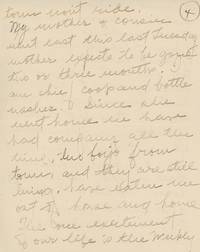 town wont ride. 4
My mother & cousin
went east this last Tuesday
mother expects to be gone
two or three months. I
am chief cook and bottle
washer. Since she
went home we have
had company all the
time, two boys from
town, and they are still
living, have eaten me
out of house and home
The one excitement
of our life is the Weekly